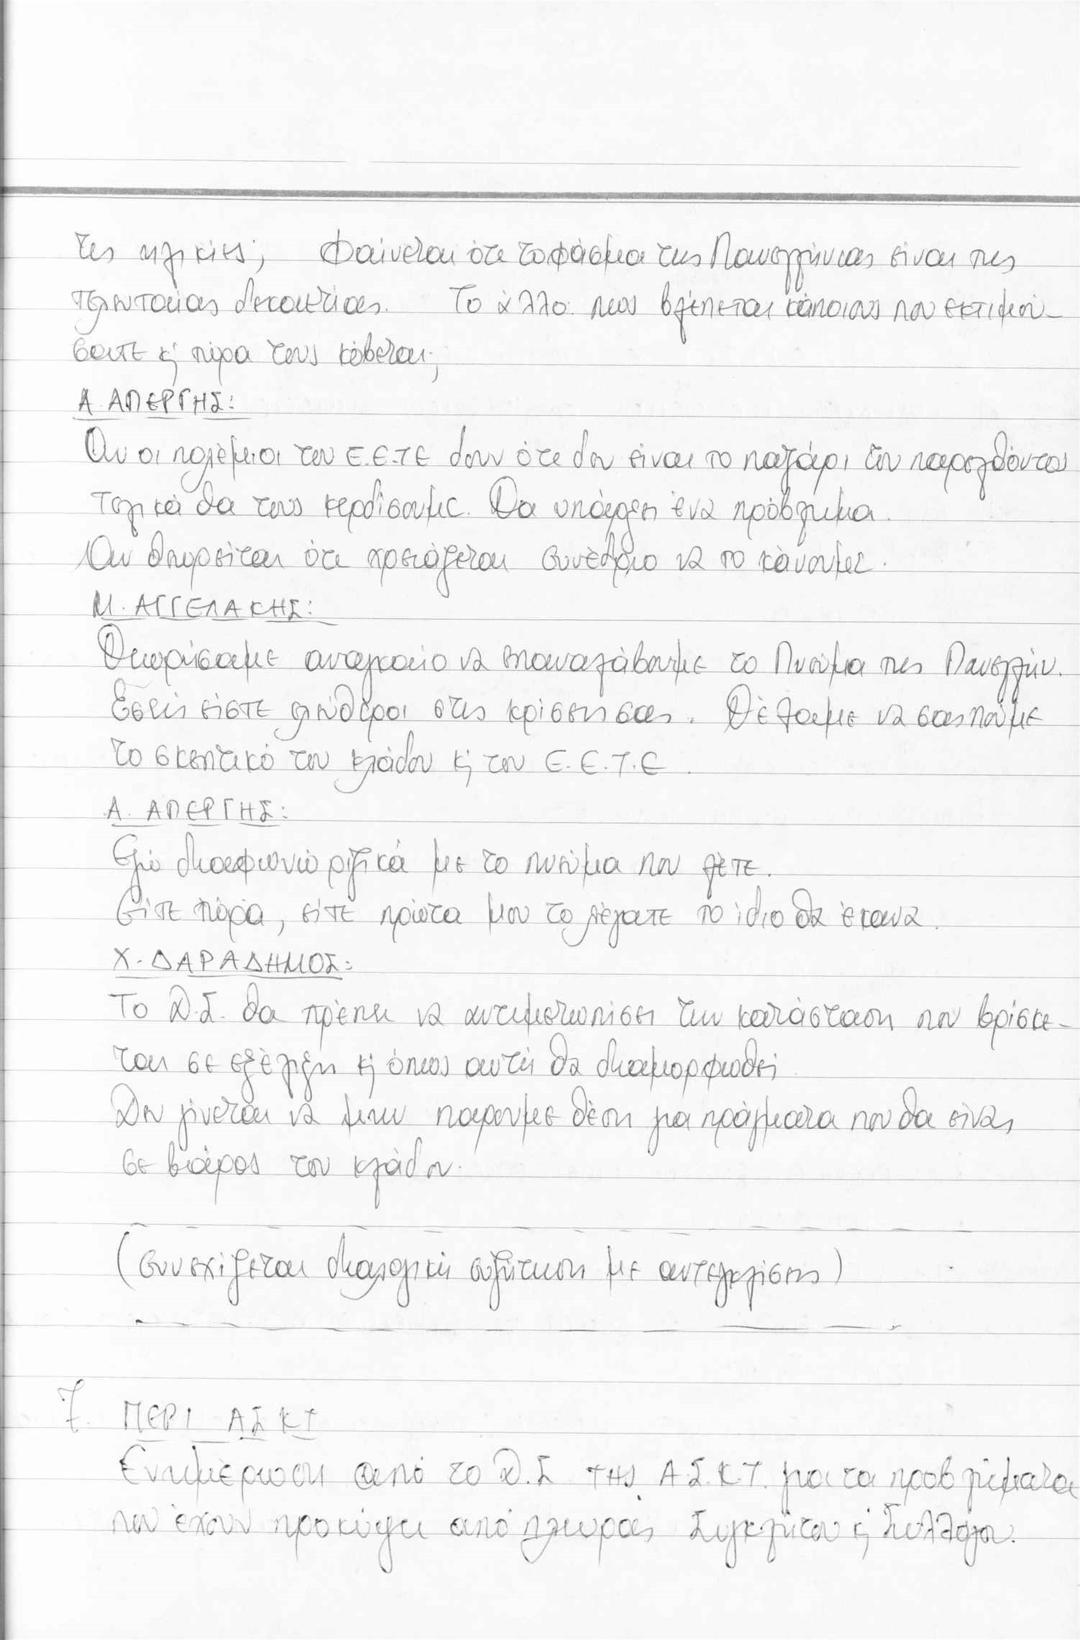 τις ηλικίες; Φαίνεται ότι το φάσμα της Πανελλήνιας είναι της
τελευταίας δεκαετίας. Το άλλο πως βλέπεται κάποιους που εκτιμού-
σατε κ' τώρα τους κόβεται;
Α. ΑΠΕΡΓΗΣ:
Αν οι πολέμιοι του Ε.Ε.Τ.Ε δουν ότι δεν είναι το παζάρι του παρελθόντος
τελικά θα τους κερδίσουμε. Θα υπάρξει ένα πρόβλημα.
Αν θεωρείται ότι χρειάζεται συνέδριο να το κάνουμε.
Μ. ΑΓΓΕΛΑΚΗΣ:
Θεωρήσαμε αναγκαίο να επαναλάβουμε το Πνεύμα της Πανελλήν.
Εσείς είστε ελεύθεροι στις κρίσεις σας. Θέλαμε να σας πούμε
το σκεπτικό του κλάδου κ' του Ε.Ε.Τ.Ε
Α. ΑΠΕΡΓΗΣ:
Εγώ διαφωνώ ριζικά με το πνεύμα που λέτε.
Είτε τώρα, είτε πρώτα μου το λέγατε το ίδιο θα έκανα.
Χ. ΔΑΡΑΔΗΜΟΣ:
Το Δ.Σ. θα πρέπει να αντιμετωπίσει την κατάσταση που βρίσκε-
ται σε εξέλιξη κ' όπως αυτή θα διαμορφωθεί
Δεν γίνεται να μην παρουμε θέση για πράγματα που θα είναι
σε βάρος του κλάδου.
(συνεχίζεται διαλογική συζήτηση με αντεγκλίσεις)
7. ΠΕΡΙ ΑΣΚΤ
Ενημέρωση από το Δ.Σ της Α.Σ.Κ.Τ. για τα προβλήματα
που έχουν προκύψει από πλευράς Συγκλήτου κ' Συλλόγου.